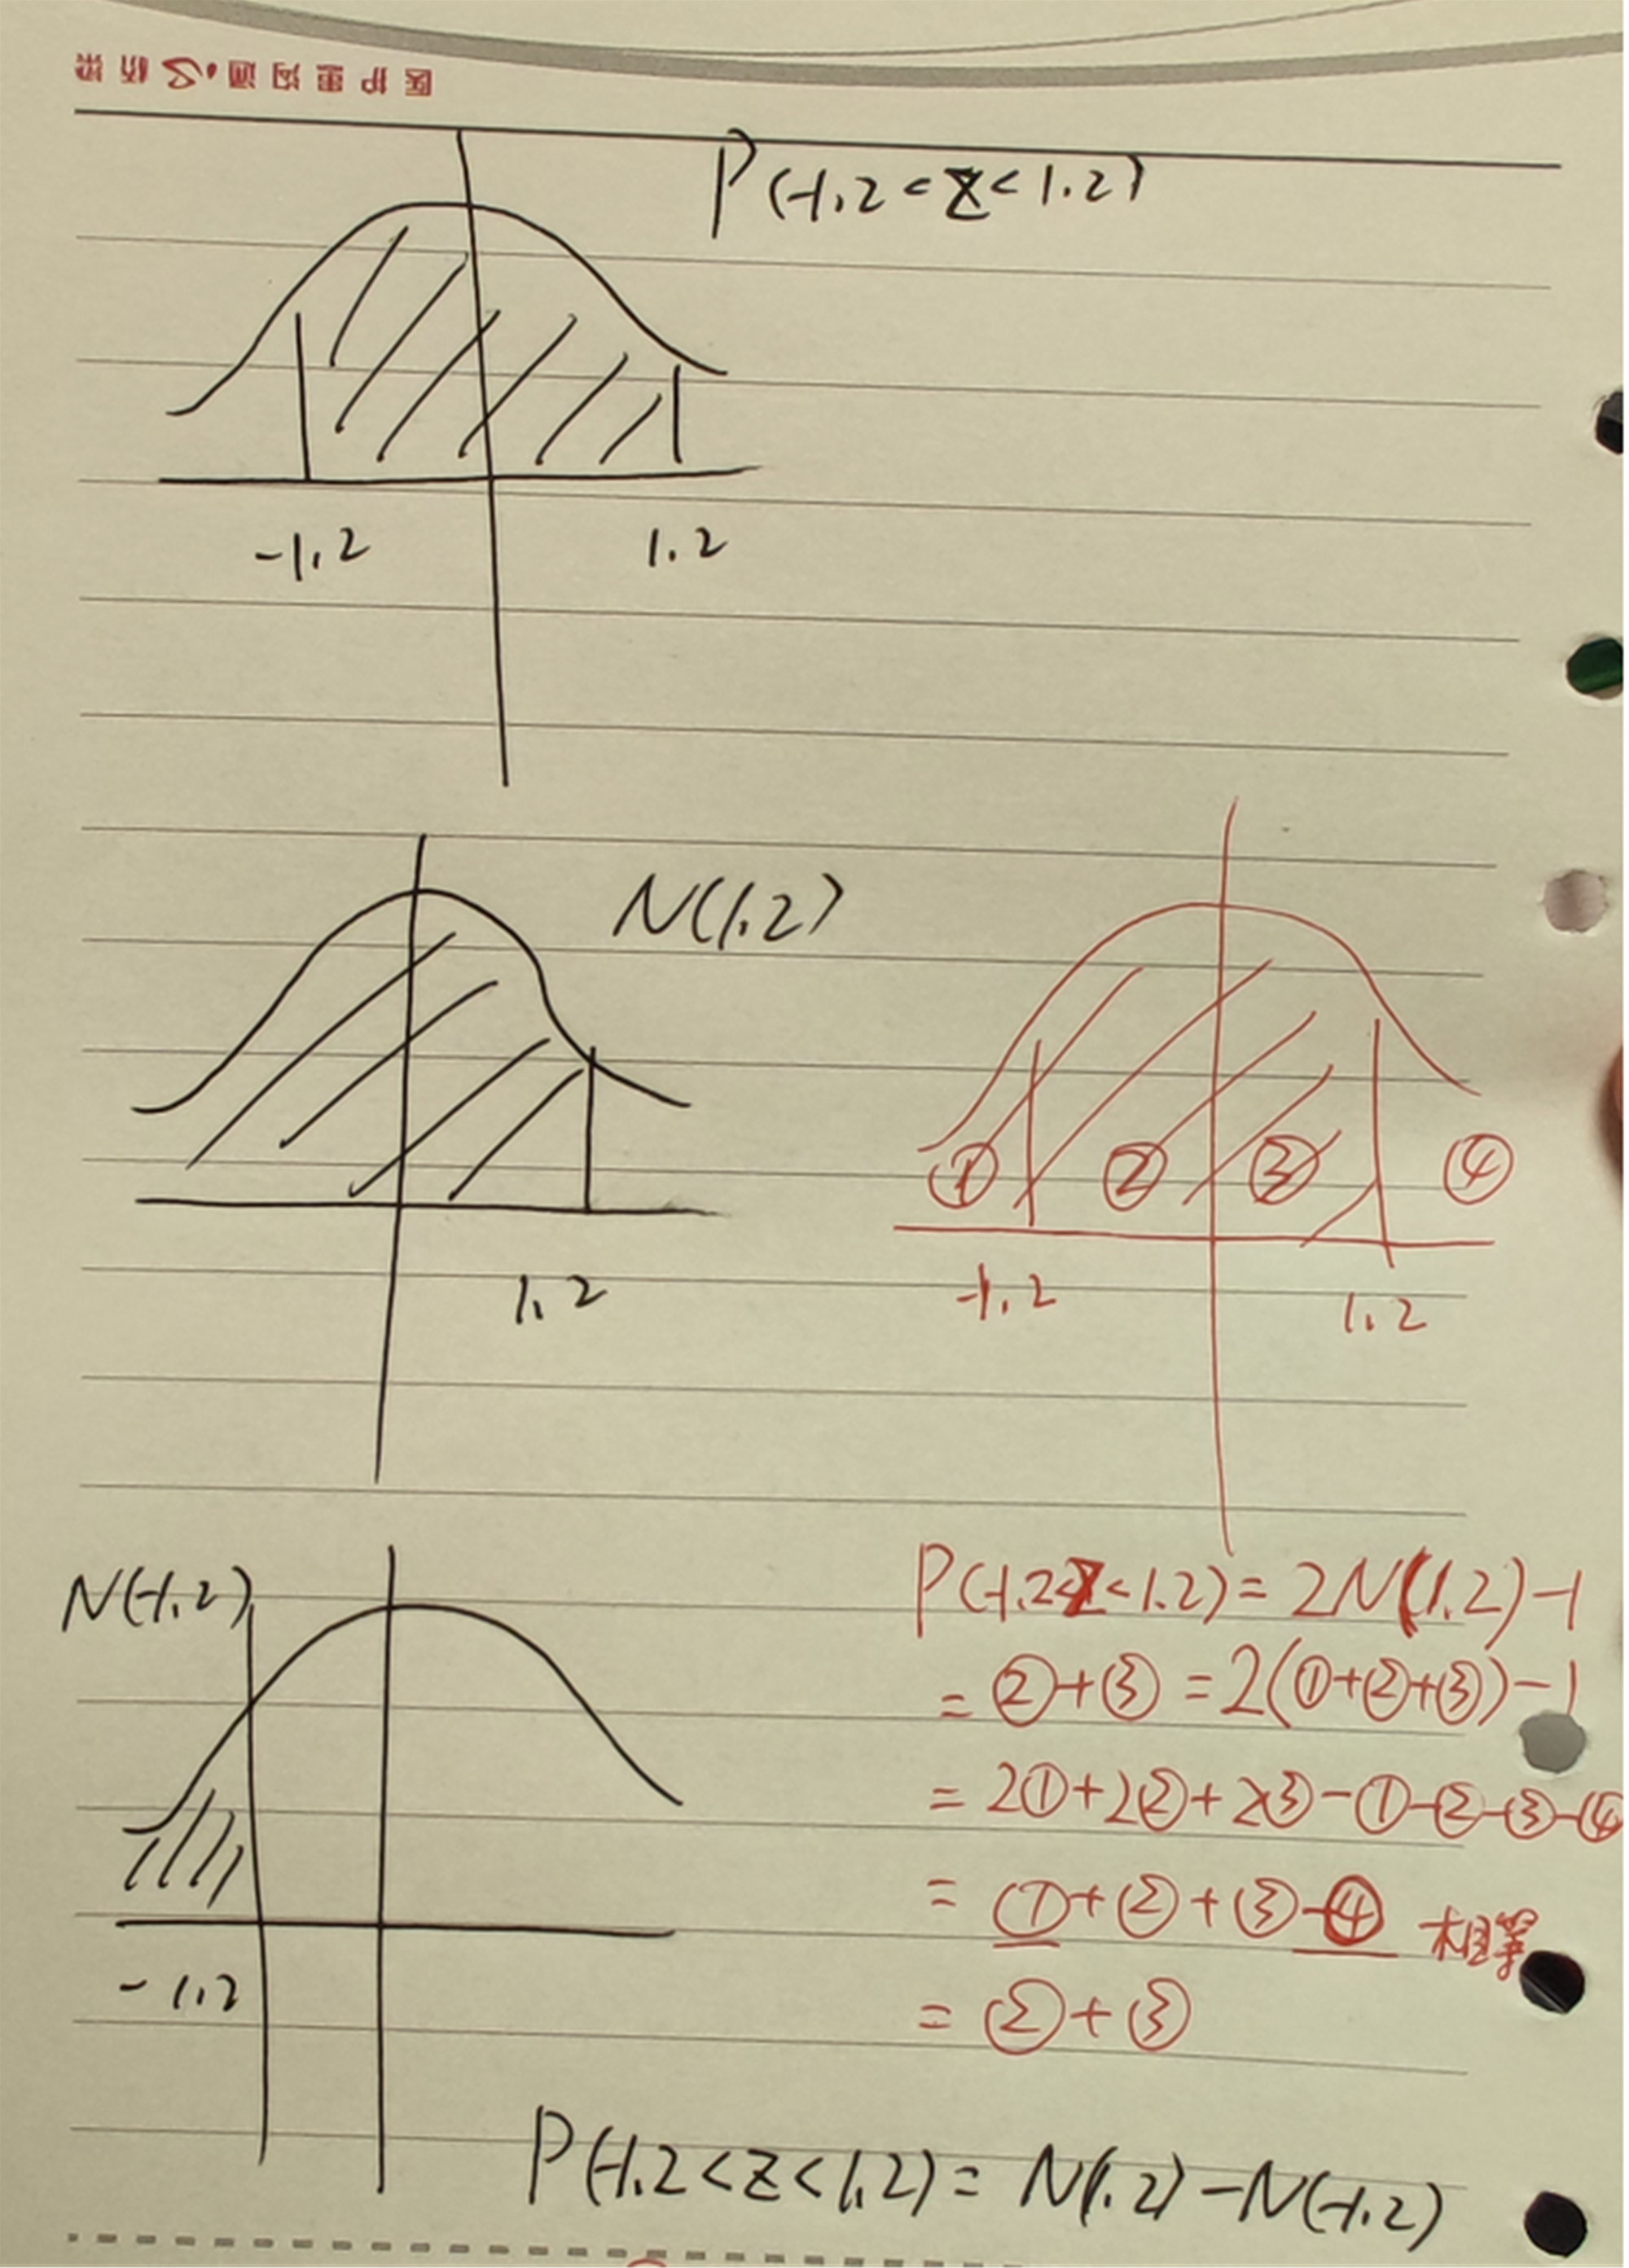 医护患沟通心桥梁
P(-1.2<Z<1.2)
-1.2 1.2
N(1.2)
1.2
① ② ③ ④
-1.2 1.2
N(-1.2)
-1.2
P(-1.2<Z<1.2)=2N(1.2)-1
=②+③=2(①+②+③)-1
=2①+2②+2③-①-②-③-④
=①+②+③-④ 相等
=②+③
P(-1.2<Z<1.2)=N(1.2)-N(-1.2)